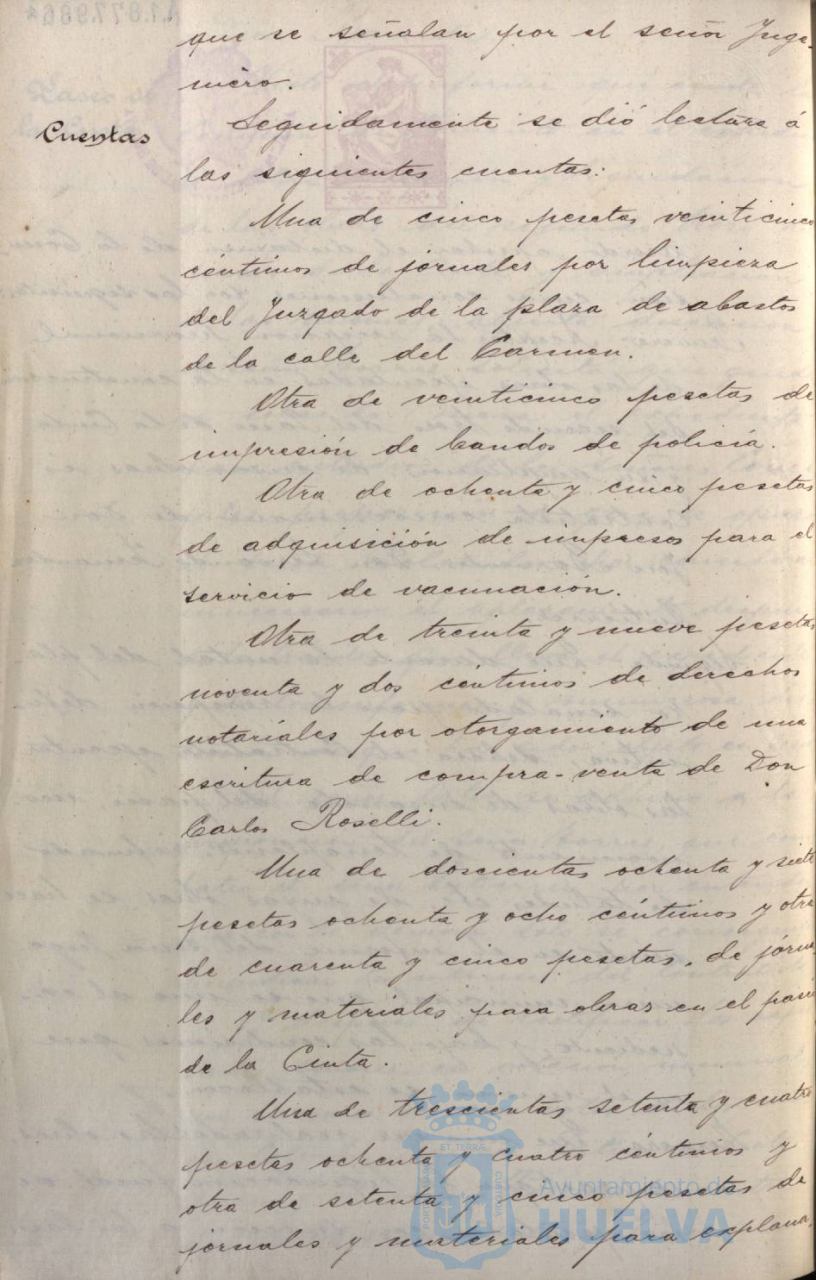 que se señalan por el señor Inge-
niero.
Cuentas
Seguidamente se dió lectura á
las siguientes cuentas:
Una de cinco pesetas veinticinco
céntimos de jornales por limpieza
del Juzgado de la plaza de abastos
de la calle del Carmen.
Otra de veinticinco pesetas de
impresión de bandos de policía.
Otra de ochenta y cinco pesetas
de adquisición de impresos para el
servicio de vacunación.
Otra de treinta y nueve pesetas
noventa y dos céntimos de derechos
notariales por otorgamiento de una
escritura de compra-venta de Don
Carlos Roselli.
Una de doscientas ochenta y siete
pesetas ochenta y ocho céntimos y otra
de cuarenta y cinco pesetas, de jórna
les y materiales para obras en el paseo
de la Cinta.
Una de trescientas setenta y cuatro
pesetas ochenta y cuatro céntimos y
otra de setenta y cinco pesetas de
jornales y materiales para explana-
Ayuntamiento de
HUELVA